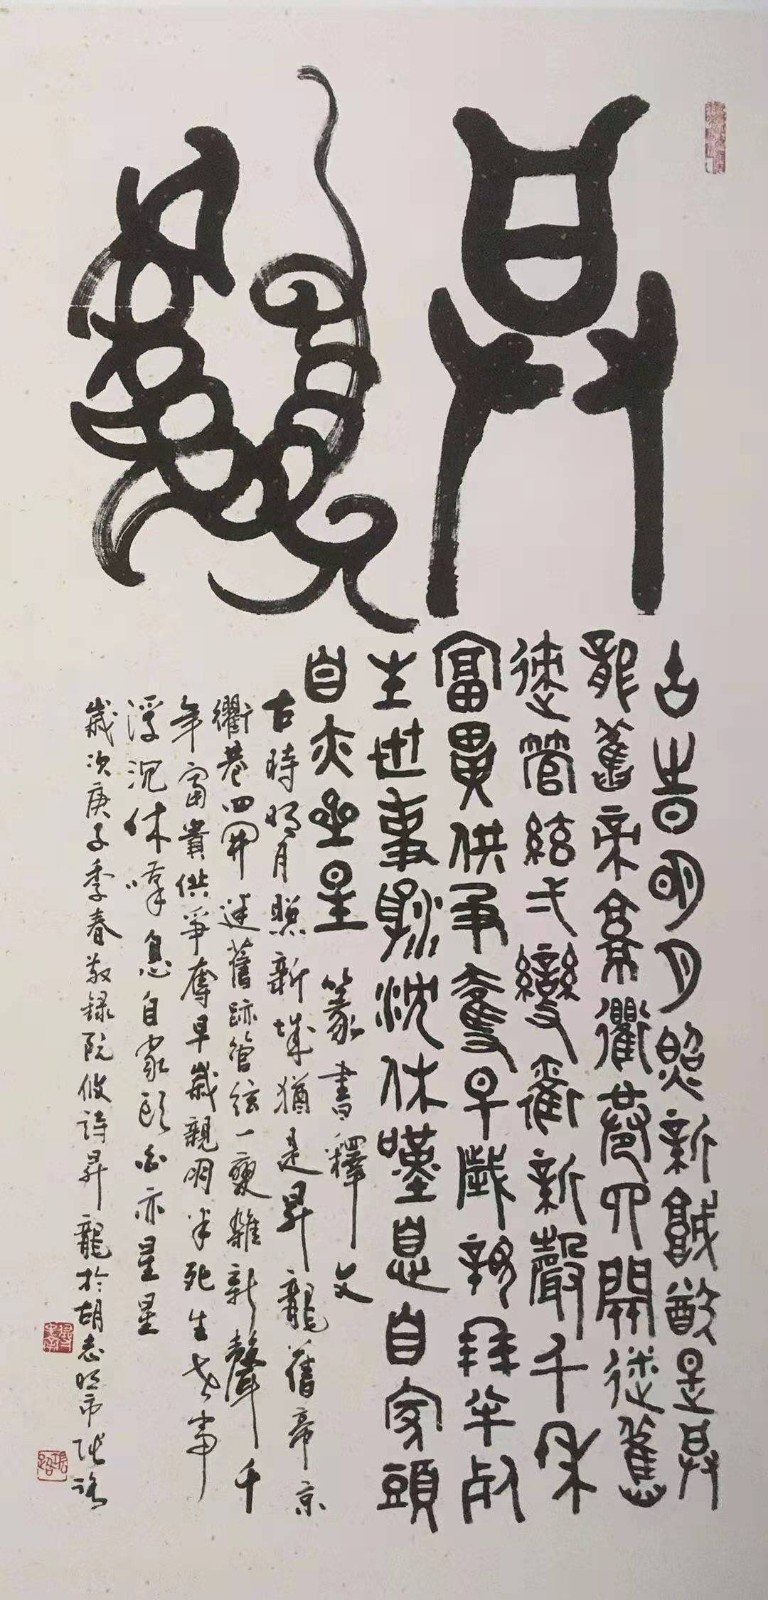 昇龍
古時明月照新城猶是昇
龍舊帝京衢巷四開迷舊
迹管絃弌變雜新聲千年
富貴供爭奪早歲親朋半死
生世事浮沈休嘆息自家頭
白亦星星 篆書釋文
古時明月照新城猶是昇龍舊帝京
衢巷四開迷舊跡管絃一變雜新聲千
年富貴供爭奪早歲親朋半死生世事
浮沉休嘆息自家頭白亦星星
歲次庚子季春敬録阮攸詩昇龍於胡志明市張路